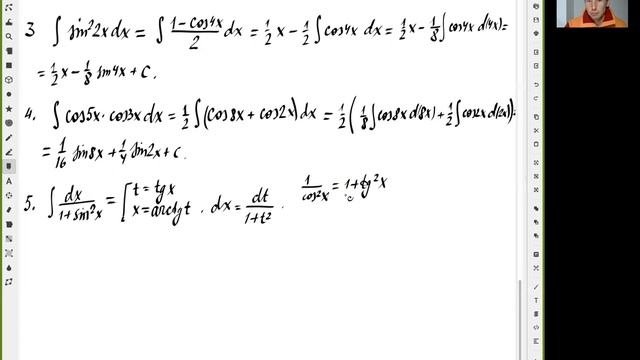 3. ∫ sin²2x dx = ∫ (1 − cos4x)/2 dx = 1/2 x − 1/2 ∫ cos4x dx = 1/2 x − 1/8 ∫ cos4x d(4x) =
= 1/2 x − 1/8 sin4x + C.
4. ∫ cos5x · cos3x dx = 1/2 ∫ (cos8x + cos2x) dx = 1/2 ( 1/8 ∫ cos8x d(8x) + 1/2 ∫ cos2x d(2x) ) =
= 1/16 sin8x + 1/4 sin2x + C.
5. ∫ dx/(1 + sin²x) = [ t = tgx
x = arctgt . dx = dt/(1 + t²) . 1/cos²x = 1 + tg²x